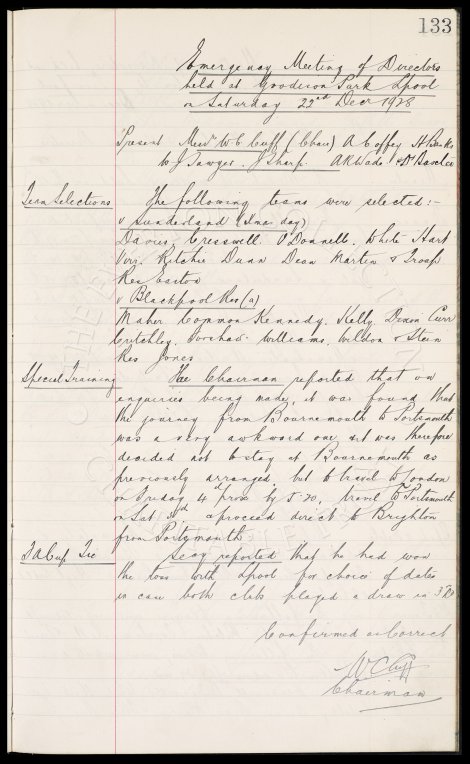 133
Emergency Meeting of Directors
held at Goodison Park Lpool
on Saturday 22nd Decr 1928
Present Messrs W C Cuff (Chair) A Coffey H Banks
W J Sawyer. J Sharp. A R Wade & Dr Baxter
Team Selections The following teams were selected:-
v Sunderland (Xmas day)
Davies, Cresswell. O'Donnell. White Hart
Virr. Ritchie Dunn Dean Martin & Troup
Res Easton
v Blackpool Res (a)
Maher Common Kennedy. Kelly Dixon Curr
Critchley, Forshaw Williams, Weldon & Stein
Res Jones
Special Training The Chairman reported that on
enquiries being made, it was found that
the journey from Bournemouth to Portsmouth
was a very awkward one & it was therefore
decided not to stay at Bournemouth as
previously arranged, but to travel to London
on Friday 4th prox by 5.20, travel to Portsmouth
on Sat & proceed direct to Brighton
from Portsmouth
F A Cup Tie Secy reported that he had won
the toss with Lpool for choice of dates
in case both clubs played a draw in 3rd Rd
Confirmed as Correct
W C Cuff
Chairman